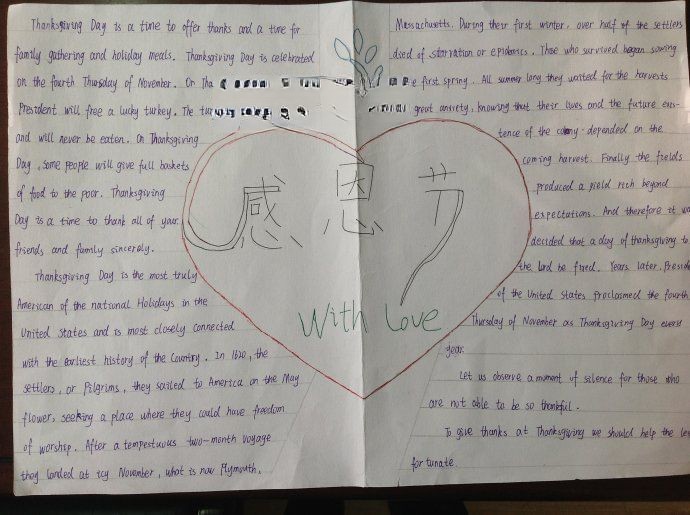 Thanksgiving Day is a time to offer thanks and a time for
family gathering and holiday meals. Thanksgiving Day is celebrated
on the fourth Thusday of November. On Tha
President will free a lucky turkey. The tur
and will never be eaten. On Thanksgiving
Day, some people will give full baskets
of food to the poor. Thanksgiving
Day is a time to thank all of your
friends and family sincerely.
Thanksgiving Day is the most truly
American of the national Holidays in the
United States and is most closely connected
with the earliest history of the Country. In 1620, the
settlers, or Pilgrims, they sailed to America on the May
flower, seeking a place where they could have freedom
of worship. After a tempestuous two-month voyage
they landed at icy November, what is now Plymouth,
感恩节
With Love
Massachusetts. During their first winter, over half of the settlers
died of starvation or epidemics. Those who survived began sowing
e first spring. All summer long they waited for the harvests
great anxiety, knowing that their lives and the future exis-
tence of the colony depended on the
coming harvest. Finally the fields
produced a yield rich beyond
expectations. And therefore it wa
decided that a day of thanksgiving to
the lord be fixed. Years later, Preside
of the United States proclaimed the fourth
Thursday of November as Thanksgiving Day every
year.
Let us observe a moment of silence for those who
are not able to be so thankful.
To give thanks at Thanksgiving we should help the le
fortunate.